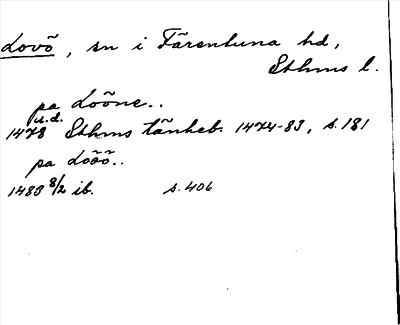 Lovö, sn i Färentuna hd,
Sthms l.
pa Loöne..
u.d.
1478 Sthms tänkeb. 1474-83, s. 181
pa Löõõ..
1483 8/2 ib. s. 406